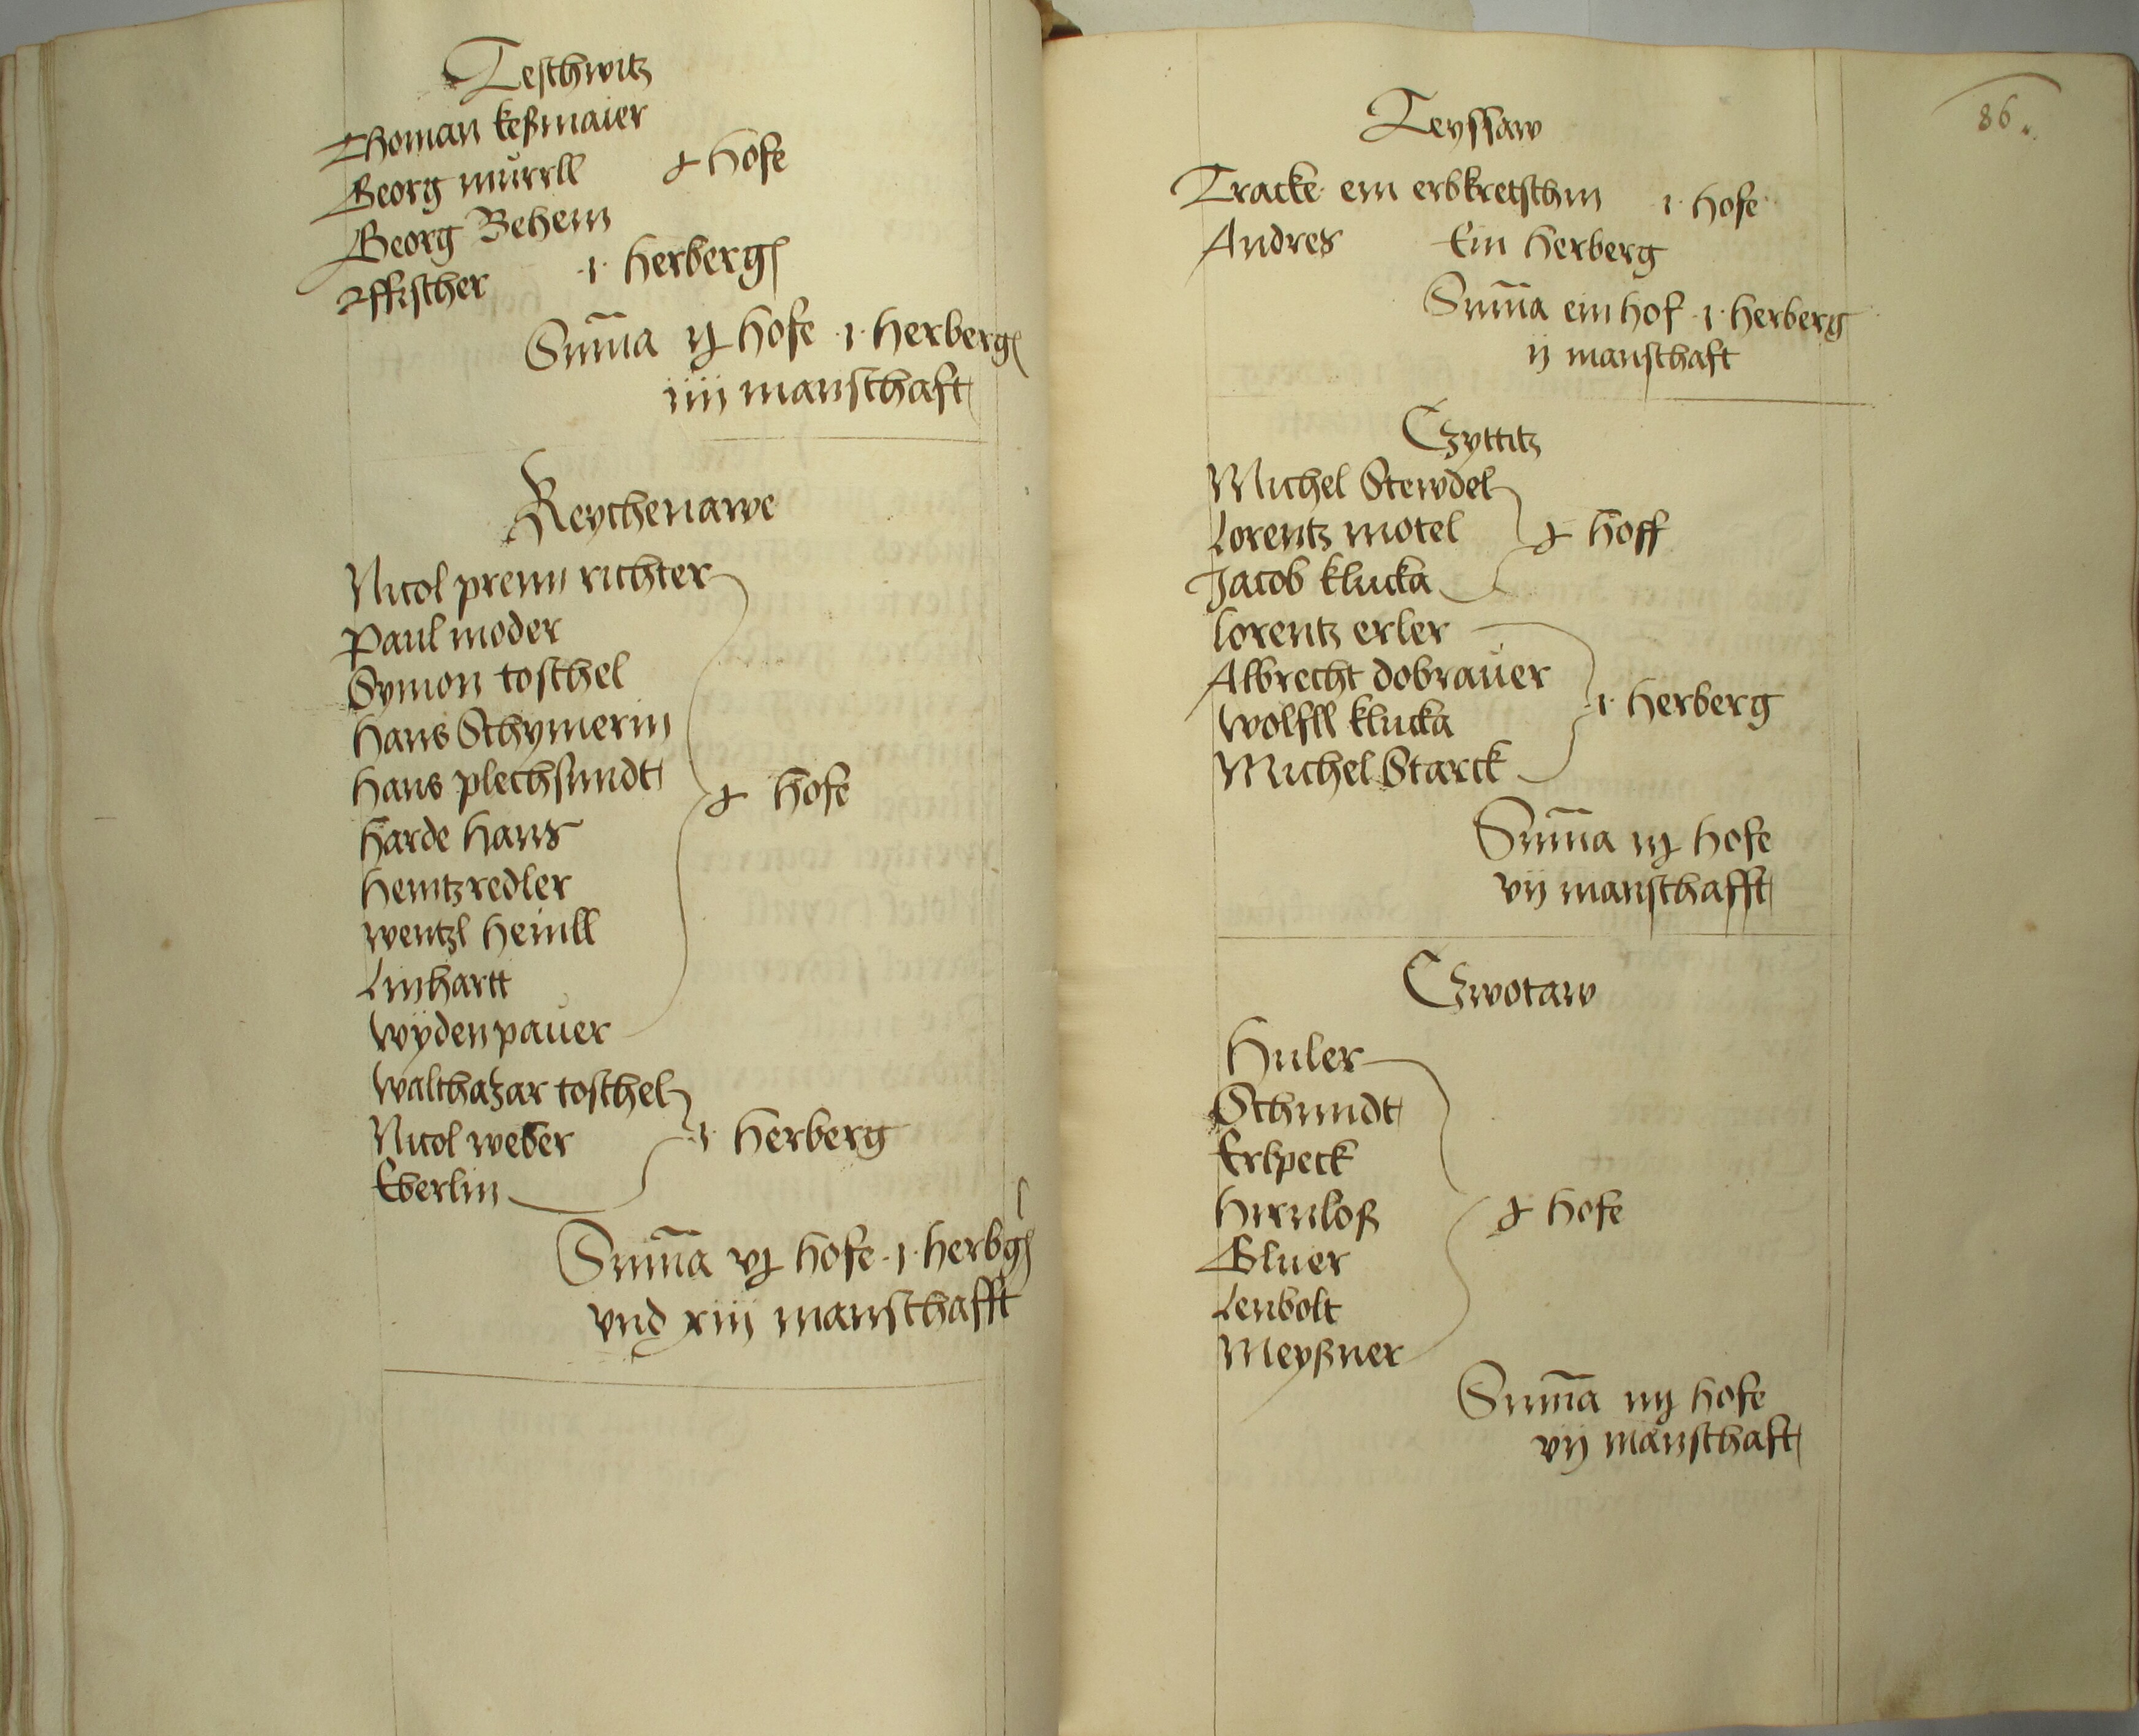 Teschwitz
Thoman keßmaier
Georg mürrll ɟ hofe
Georg Behem
Ffischer ·1· herberg
Sum̄a ijɟ hofe ·1· herberg
iiij manschaft
Reychenawe
Nicol prenn richter
Paul moder
Symon toschel
Hans Schymerin
Hans plechsmidt
Harde Hans ɟ hofe
Heintz redler
Wentzl Heinll
Linhartt
Wÿdenpaŭer
Walthazar toschel
Nicol weber ·1· herberg
Eberlin
Sum̄a vɟ hofe ·1· herbg
vnd xiij manschafft
86
Teyssaw
Tracke ein erbkretschm ·1· hofe
Andres Ein herberg
Sum̄a ein hof ·1· herberg
ij manschaft
Czyttitz
Michel Stewdel
Lorentz motel ɟ hoff
Jacob klucka
Lorentz erler
Albrecht dobraŭer
Wolfll klucka ·1· herberg
Michel Starck
Sum̄a iijɟ hofe
vij manschafft
Czwotaw
Huler
Schmidt
Erlpeck
Hirnloß ɟ hofe
Gluer
Lenbolt
Meyßner
Sum̄a iiijɟ hofe
vij manschaft